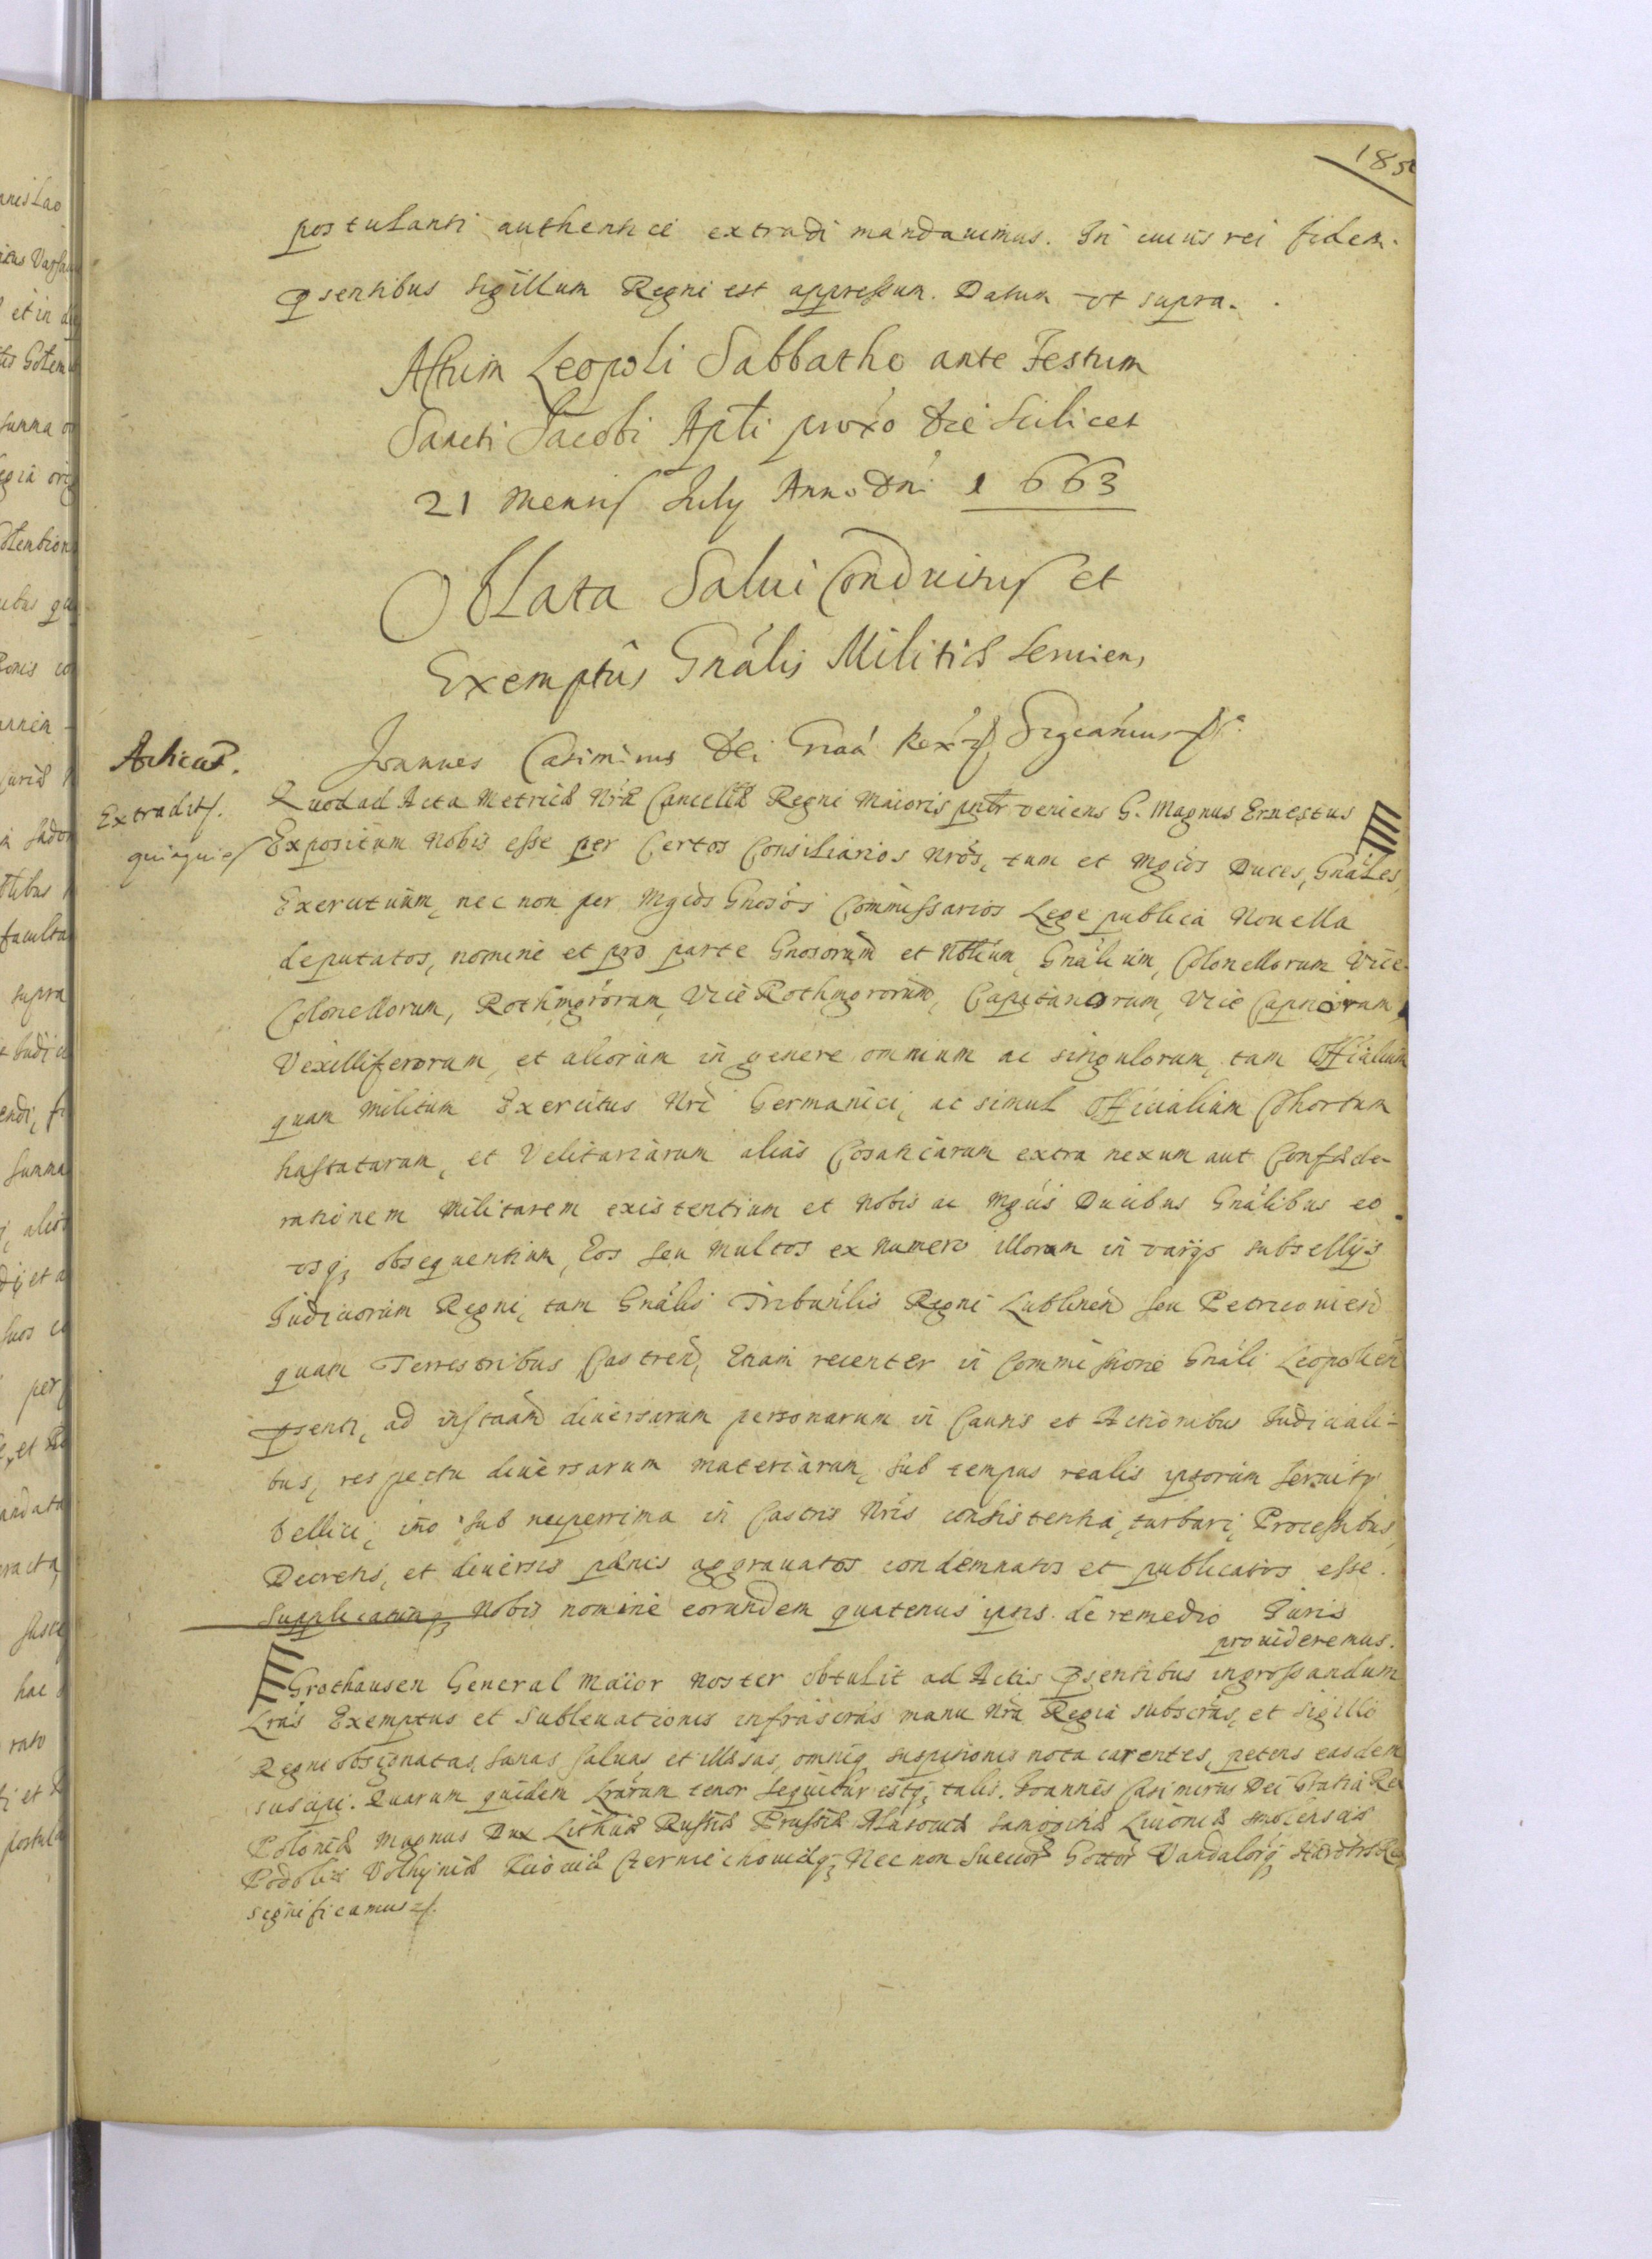 185
postulanti authentice extradi mandauimus. In cuius rei fidem
p̄sentibus Sigillum Regni est appressum. Datum vt supra.
Actum Leopoli Sabbatho ante Festum
Sancti Jacobi Apłi proxo die Scilicet
21 Mensis July Anno Dni 1663
Oblata Salui Conductus et
Exemptûs Gnális Militiæ Seruien,
Joannes Casimirus Dei Graa Rex
Acticat.
Extradit.
quinquies
Quod ad Acta Metricæ Nræ Cancellæ Regni Maioris pntr veniens G. Magnus Ernestus
Expositum Nobis esse per Certos Consiliarios Nros, tum et Mgcos Duces, Gnáles,
Exercituum, nec non per Mgcos Gnosos Commissarios Lege publica Nouella
deputatos, nomine et pro parte Gnosorum et Nblium, Gnálium, Colonellorum Vice
Colonellorum, Rothmgrorum, Vice Rothmgrorum, Capitanorum, Vice Capneorum,
Vexilliferorum, et aliorum in genere omnium ac singulorum, tam Officialium
quam Militum Exercitus Nri Germanici, ac simul Officialium Cohortum
hastatarum, et Velitariarum alias Cosaticarum extra nexum aut Confæde-
rationem Militarem existentium et Nobis ac Mgcis Ducibus Gnálibus eo
vsq; obsequentium, Eos seu Multos ex numero illorum in varijs subsellijs
Judiciorum Regni, tam Gnális Tribunlis Regni Lublinen seu Petricouien
quam Terrestribus Castren, Etiam recenter in Commissione Gnáli Leopolien
p̄senti, ad instaam diuersarum personarum in Causis et Actionibus Judiciali-
bus, respectu diuersarum materiarum, sub tempus realis ipsorum Seruity
bellici, imo sub nuperrima in Castris Nris consistentia, turbari, Processibus,
Decretis, et diuersis pænis aggrauatos condemnatos et publicatos esse.
Supplicatumq; Nobis nomine eorundem quatenus ipsis de remedio Juris
prouideremus.
Grothausen General Maior Noster obtulit ad Actis p̄sentibus ingrossandum
Lrás Exemptus et Subleuationis infrascras manu Nra Regia subscras, et Sigillo
Regni obsignatas, Sanas saluas et illæsas, omniq; suspitionis nota carentes, petens easdem
suscipi. Quarum quidem Lrárum tenor sequitur estq; talis. Joannes Casimirus Dei Gratia Rex
Poloniæ Magnus Dux Lithuæ Russiæ Prussiæ Masouiæ Samogitiæ Liuoniæ Smolensciæ
Podoliæ Volhyniæ Kiiouiæ Czerniechouiæq; Nec non Suecor Gottor Vandalorq;
significamus